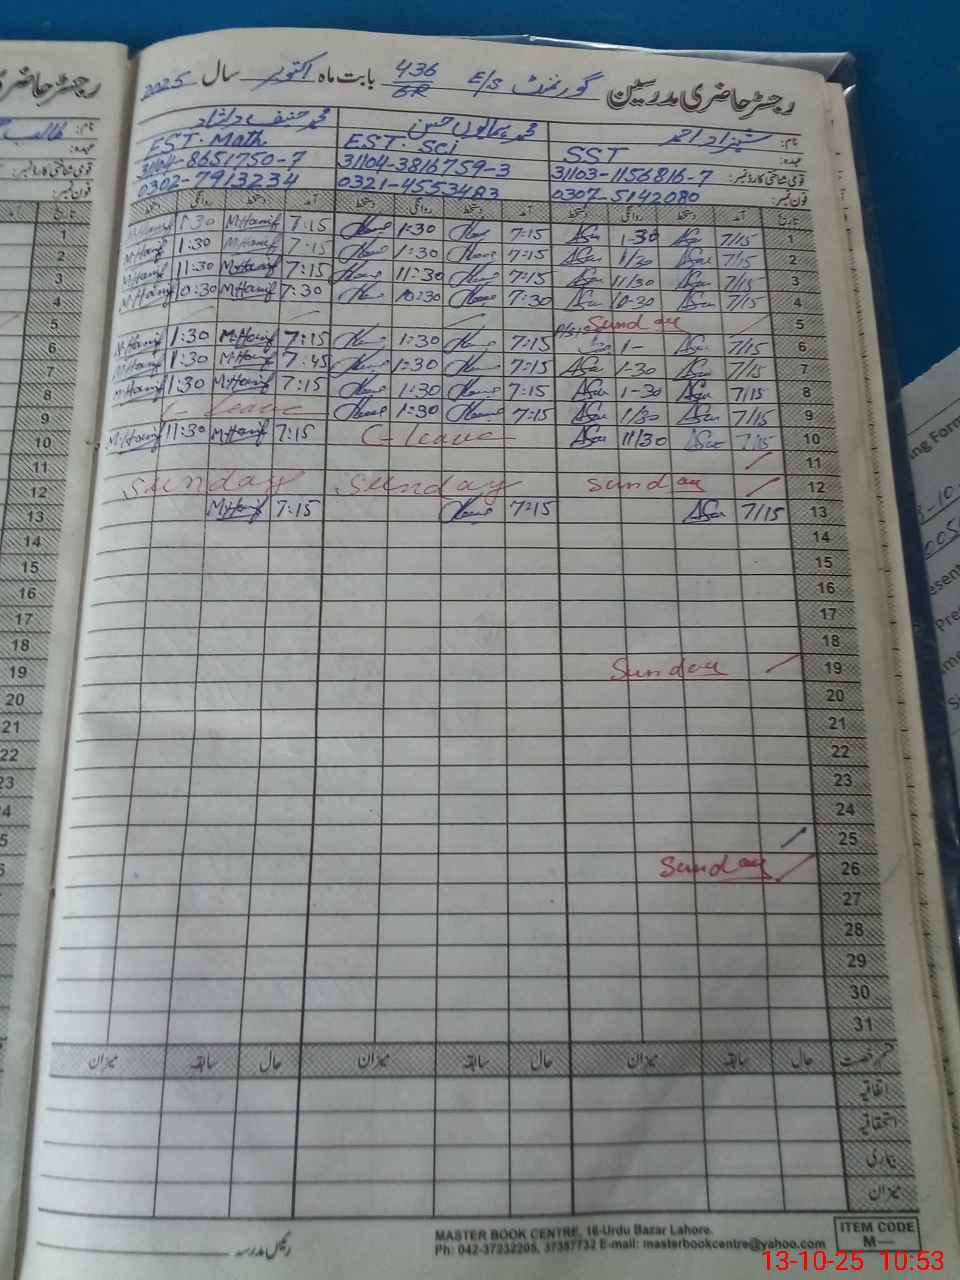 رجسٹر حاضری مدرسین گورنمنٹ E/S 436/6R بابت ماہ اکتوبر سال 2025
نام: شہزاد احمد محمد ہمایوں حسن محمد حنیف دلشاد
عہدہ: SST EST. Sci EST. Math
قومی شناختی کارڈ نمبر: 31103-1156816-7 31104-3816759-3 31104-8651750-7
فون نمبر: 0307-5142080 0321-4553483 0302-7913234
تاریخ آمد دستخط روانگی دستخط آمد دستخط روانگی دستخط آمد دستخط روانگی دستخط
1 7/15 1-30 7:15 1:30 7:15 M.Hanif 1:30 M.Hanif
2 7/15 11/30 7:15 1:30 7:15 M.Hanif 1:30 M.Hanif
3 7/15 11/30 7:15 11:30 7:15 M.Hanif 11:30 M.Hanif
4 7/15 10-30 7:30 10:30 7:30 M.Hanif 10:30 M.Hanif
5 Sunday
6 7/15 1- 7:15 1:30 7:15 M.Hanif 1:30 M.Hanif
7 7/15 1-30 7:15 1:30 7:45 M.Hanif 1:30 M.Hanif
8 7/15 1-30 7:15 1:30 7:15 M.Hanif 1:30 M.Hanif
9 7/15 11/30 7:15 1:30 C-leave
10 7/15 11/30 C-leave 7:15 M.Hanif 11:30 M.Hanif
11
12 Sunday Sunday Sunday
13 7/15 7:15 7:15 M.Hanif
14
15
16
17
18
19 Sunday
20
21
22
23
24
25
26 Sunday
27
28
29
30
31
قسم رخصت حال سابقہ میزان حال سابقہ میزان حال سابقہ میزان
اتفاقیہ
استحقاقیہ
بیماری
میزان
رئیس مدرسہ
MASTER BOOK CENTRE, 16-Urdu Bazar Lahore.
Ph: 042-37232205, 37357732 E-mail: masterbookcentre@yahoo.com
ITEM CODE
M—
13-10-25 10:53